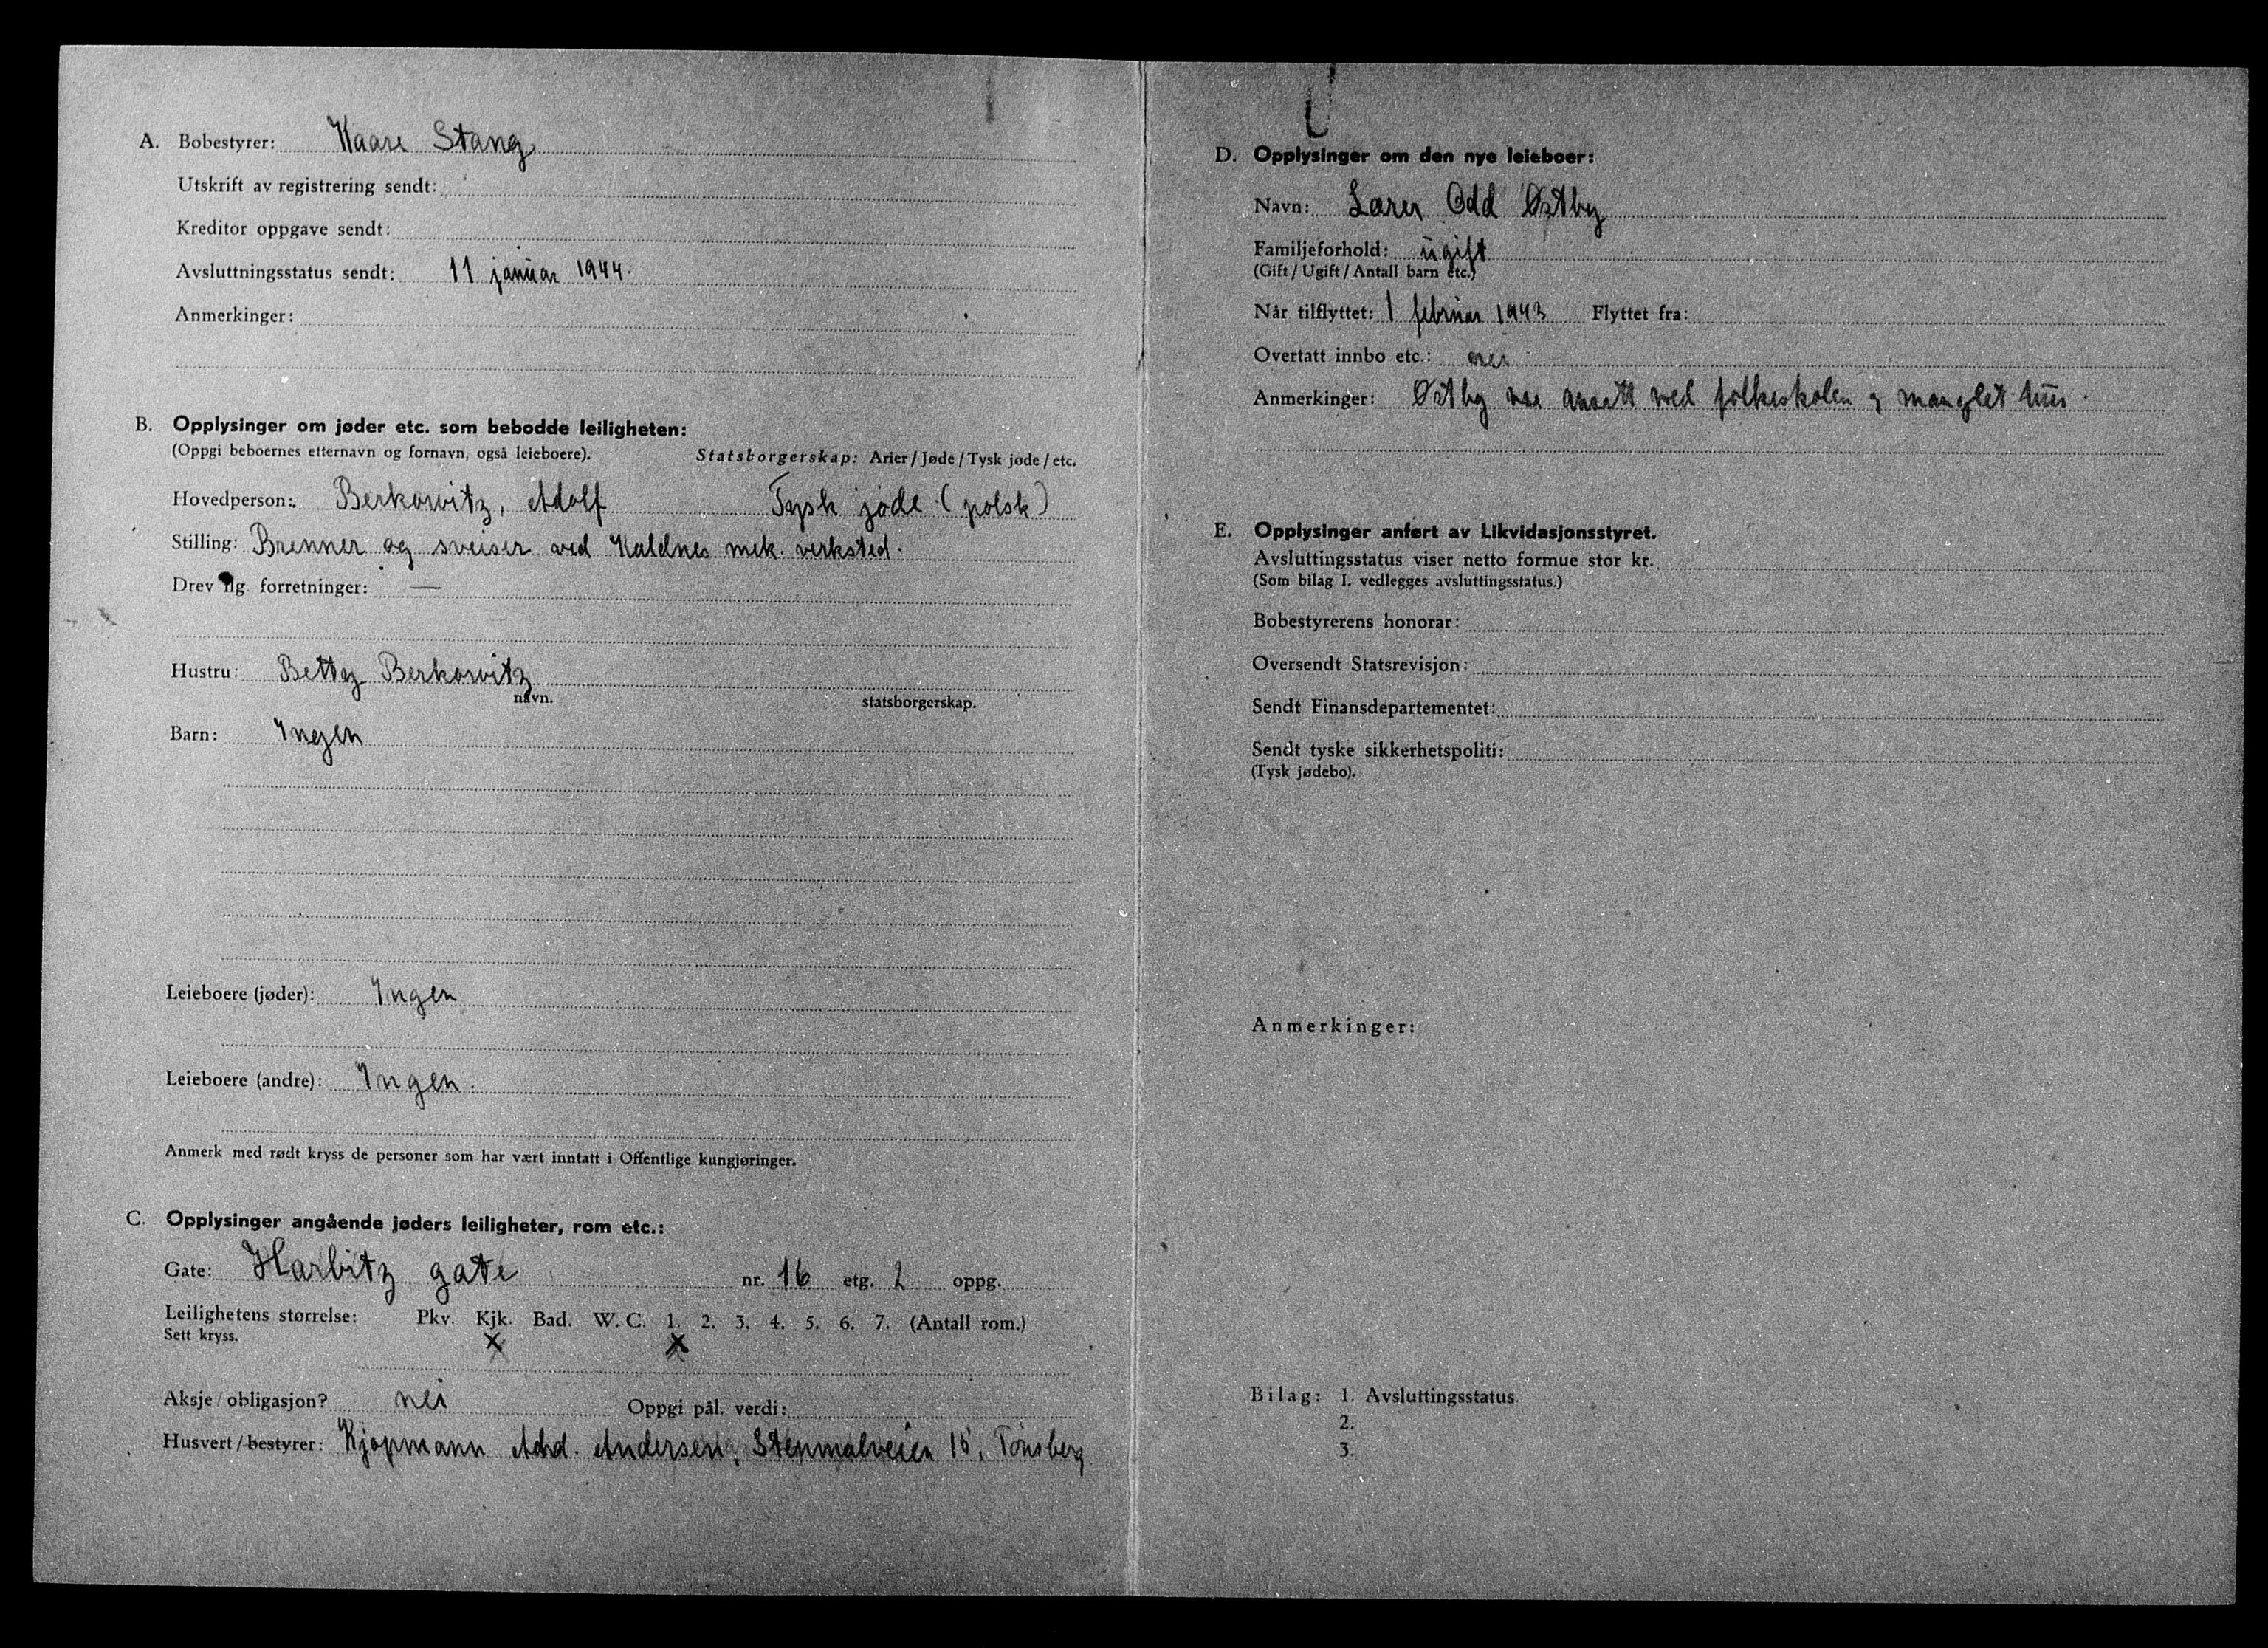 A. Bobestyrer: Kaare Stang
Utskrift av registrering sendt:
Kreditor oppgave sendt:
Avsluttningsstatus sendt: 11 januar 1944.
Anmerkinger:
B. Opplysinger om jøder etc. som bebodde leiligheten:
(Oppgi beboernes etternavn og fornavn, også leieboere). Statsborgerskap: Arier/Jøde/Tysk jøde/etc.
Hovedperson: Berkowitz, Adolf Tysk jøde (polsk)
Stilling: Brenner og sveiser ved Kaldnes mek. verksted.
Drev flg. forretninger: —
Hustru: Betty Berkowitz
navn. statsborgerskap.
Barn: Ingen
Leieboere (jøder): Ingen
Leieboere (andre): Ingen.
Anmerk med rødt kryss de personer som har vært inntatt i Offentlige kungjøringer.
C. Opplysinger angående jøders leiligheter, rom etc.:
Gate: Harbitz gate nr. 16 etg. 2 oppg.
Leilighetens størrelse: Pkv. Kjk. Bad. W.C. 1. 2. 3. 4. 5. 6. 7. (Antall rom.)
Sett kryss. X X
Aksje/obligasjon? nei Oppgi pål. verdi:
Husvert/bestyrer: Kjøpmann Andersen, 15, Tønsberg
D. Opplysinger om den nye leieboer:
Navn: Lærer Odd Østby
Familjeforhold: ugift
(Gift/Ugift/Antall barn etc.)
Når tilflyttet: 1 februar 1943 Flyttet fra:
Overtatt innbo etc.: nei
Anmerkinger: Østby var ansatt ved folkeskolen og manglet hus.
E. Opplysinger anført av Likvidasjonsstyret.
Avsluttingsstatus viser netto formue stor kr.
(Som bilag I. vedlegges avsluttingsstatus.)
Bobestyrerens honorar:
Oversendt Statsrevisjon:
Sendt Finansdepartementet:
Sendt tyske sikkerhetspoliti:
(Tysk jødebo).
Anmerkinger:
Bilag: 1. Avsluttingsstatus.
2.
3.